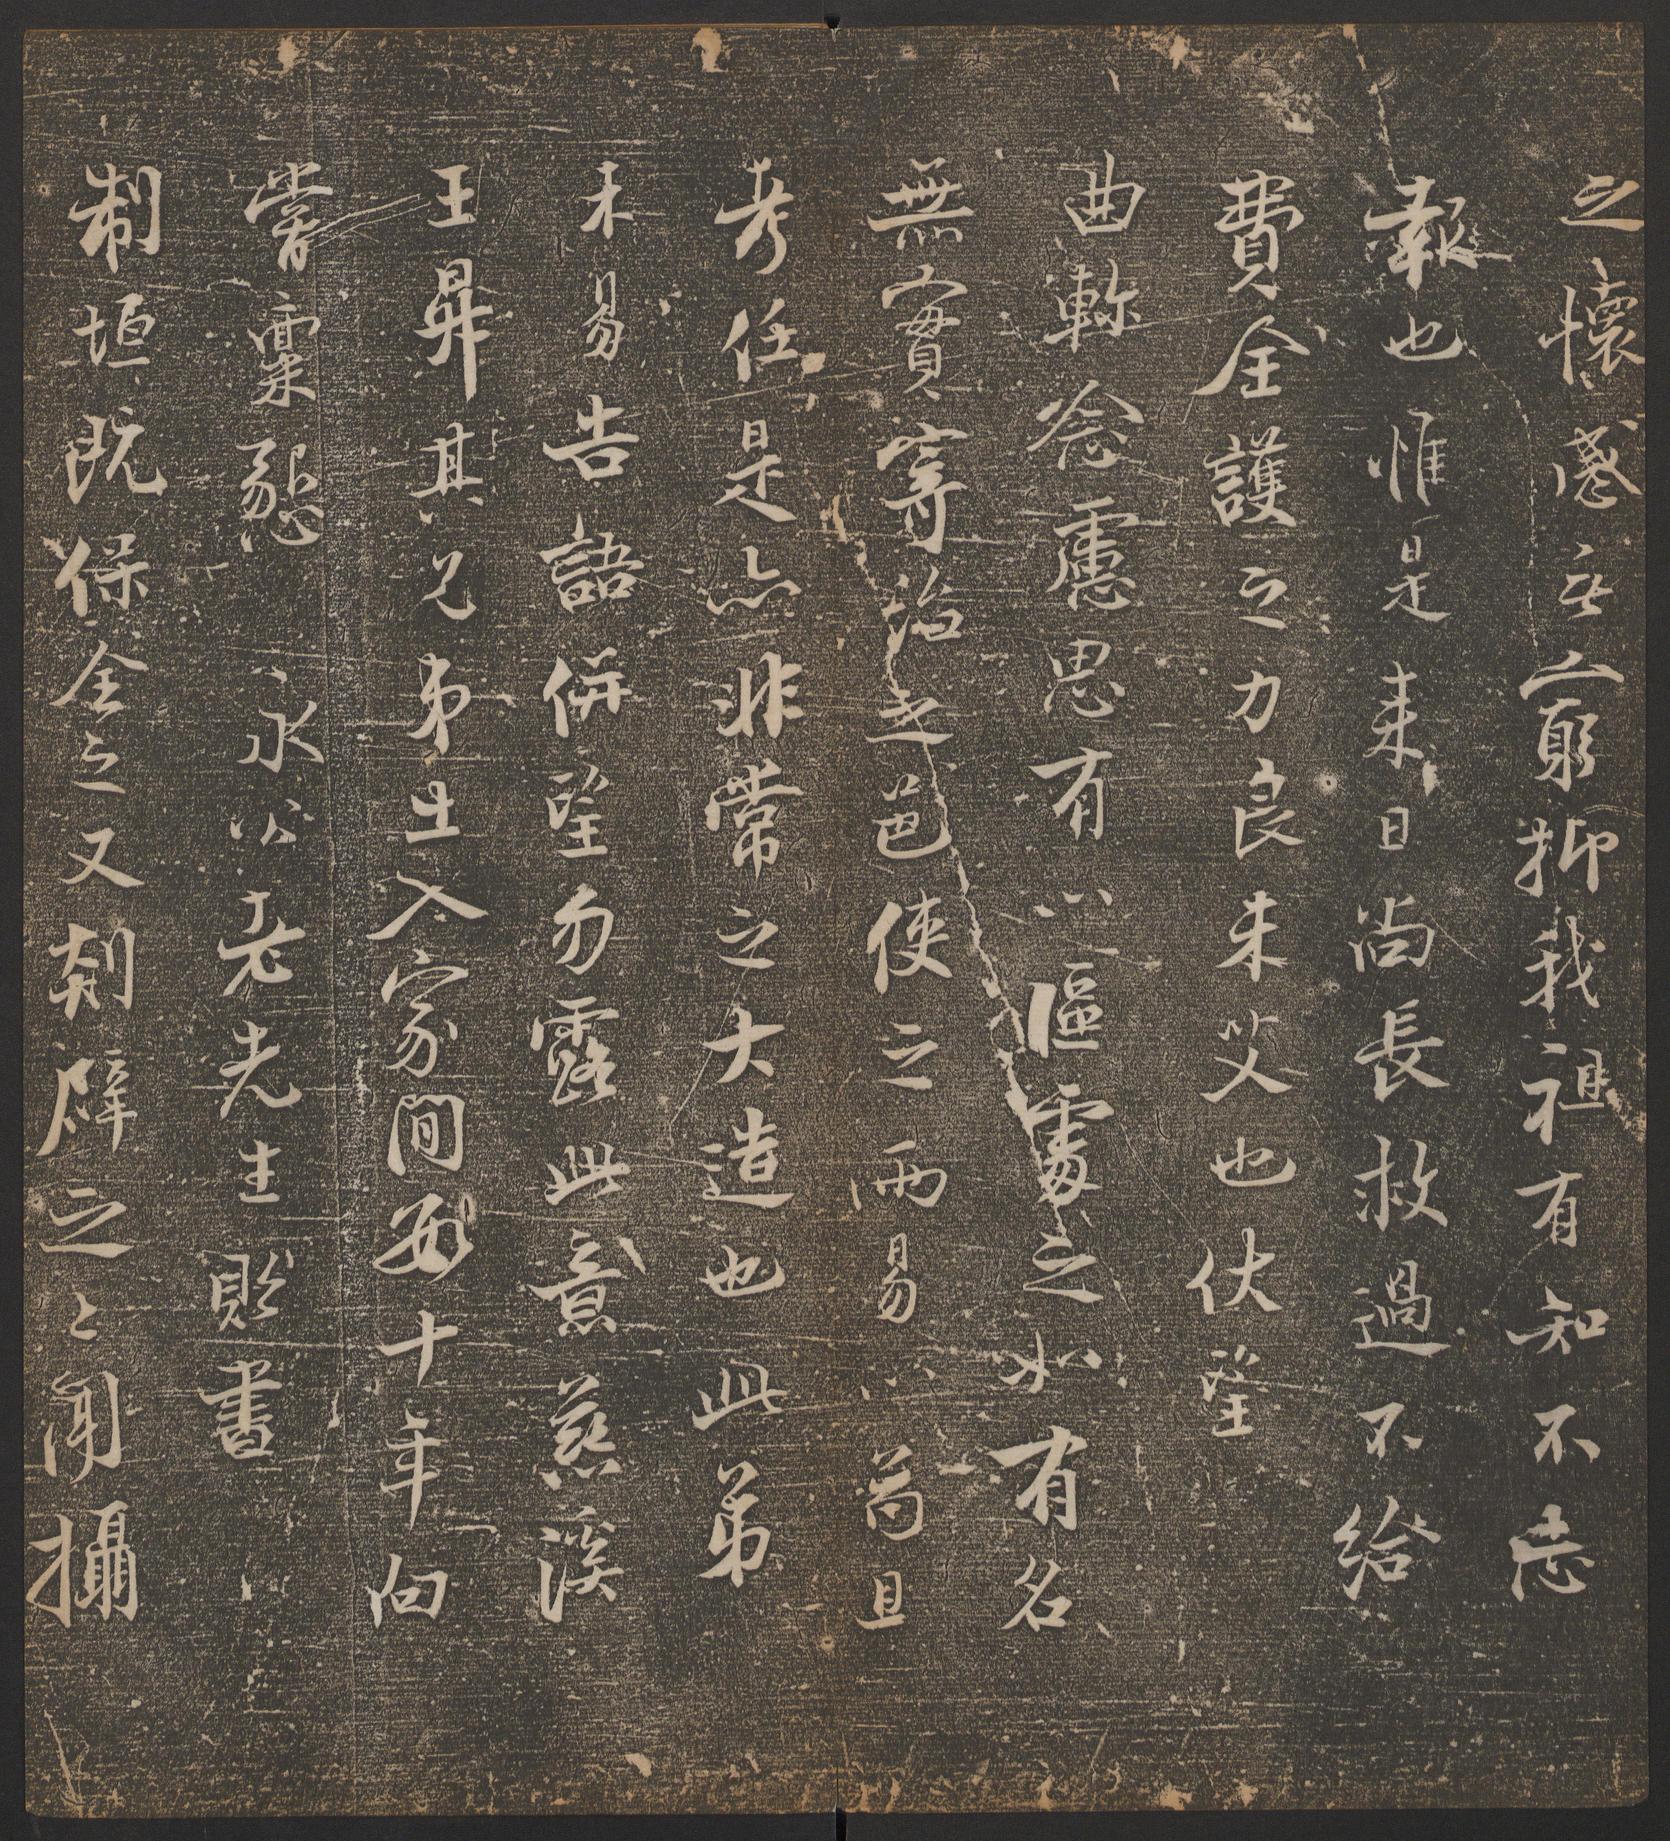 之懷感无窮抑我祖有知不忘
報也惟是来日尚長救過不給
費全護之力良未艾也伏望
曲軫念慮思有以區處之如有名
無實寧治之邑使之而易以苟且
考任是亦非常之大造也此弟
未易告語併望勿露此意慈溪
王昇其兄弟出入家間將十年向
嘗稟懇永公老先生貽書
制垣既保全之又剡辟之之間攝